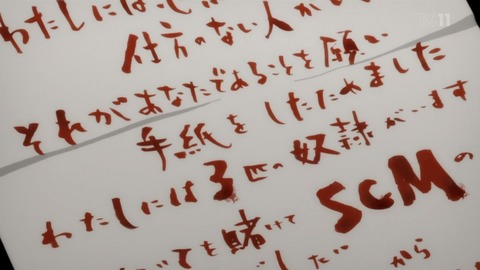 わたしには
仕方のない人が
それがあなたであることを願い
手紙をしたためました
わたしには3匹の奴隷が…ます
わたし
でも賭けてSCMの
から
11